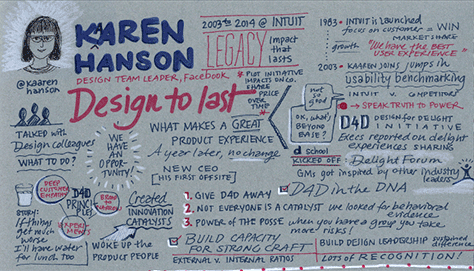 KAREN
HANSON
@kaaren
hanson
DESIGN TEAM LEADER, Facebook
Design to last
2003 to 2014 @ INTUIT
LEGACY
Impact
that
lasts
* PLOT INITIATIVE
IMPACTS ON CO.
SHARE
PRICE
OVER
TIME
1983 • INTUIT is launched
focus on customer = WIN
MARKETSHARE
growth
"We have the BEST
USER EXPERIENCE"
2003 • KAAREN JOINS, jumps in
usability benchmarking
INTUIT v. COMPETITOR
→ SPEAK TRUTH TO POWER
not
so
good
OK, what's
BEYOND
BASE?
D4D DESIGN FOR DELIGHT
INITIATIVE
Execs reported on delight
experiences SHARING
d school
KICKED OFF
Delight Forum
GMs got inspired by other industry
leaders
TALKED with
Design colleagues
WHAT TO DO?
WE
HAVE
AN
OPPOR-
TUNITY!
WHAT MAKES A GREAT
PRODUCT EXPERIENCE
A year later, no change
NEW CEO
(HIS FIRST OFFSITE)
D4D in the DNA
DEEP
CUSTOMER
EMPATHY
D4D
PRINCI-
PLES
BROAD to
NARROW
EXPERIMENTS
Created
INNOVATION
CATALYSTS
STORY:
If things
get much
worse
I'll have water
for lunch too
WOKE UP the
PRODUCT PEOPLE
1. GIVE D4D AWAY
2. NOT EVERYONE IS A CATALYST
we looked for behavioral
evidence
3. POWER OF THE POSSE
when you have a group you take
more risks!
BUILD CAPACITY
FOR STRONG CRAFT
EXTERNAL V. INTERNAL RATIOS
BUILD DESIGN LEADERSHIP
sustained
difference
LOTS of RECOGNITION!